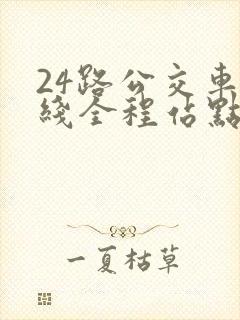 24路公交車
綫全程佔點
一夏枯草